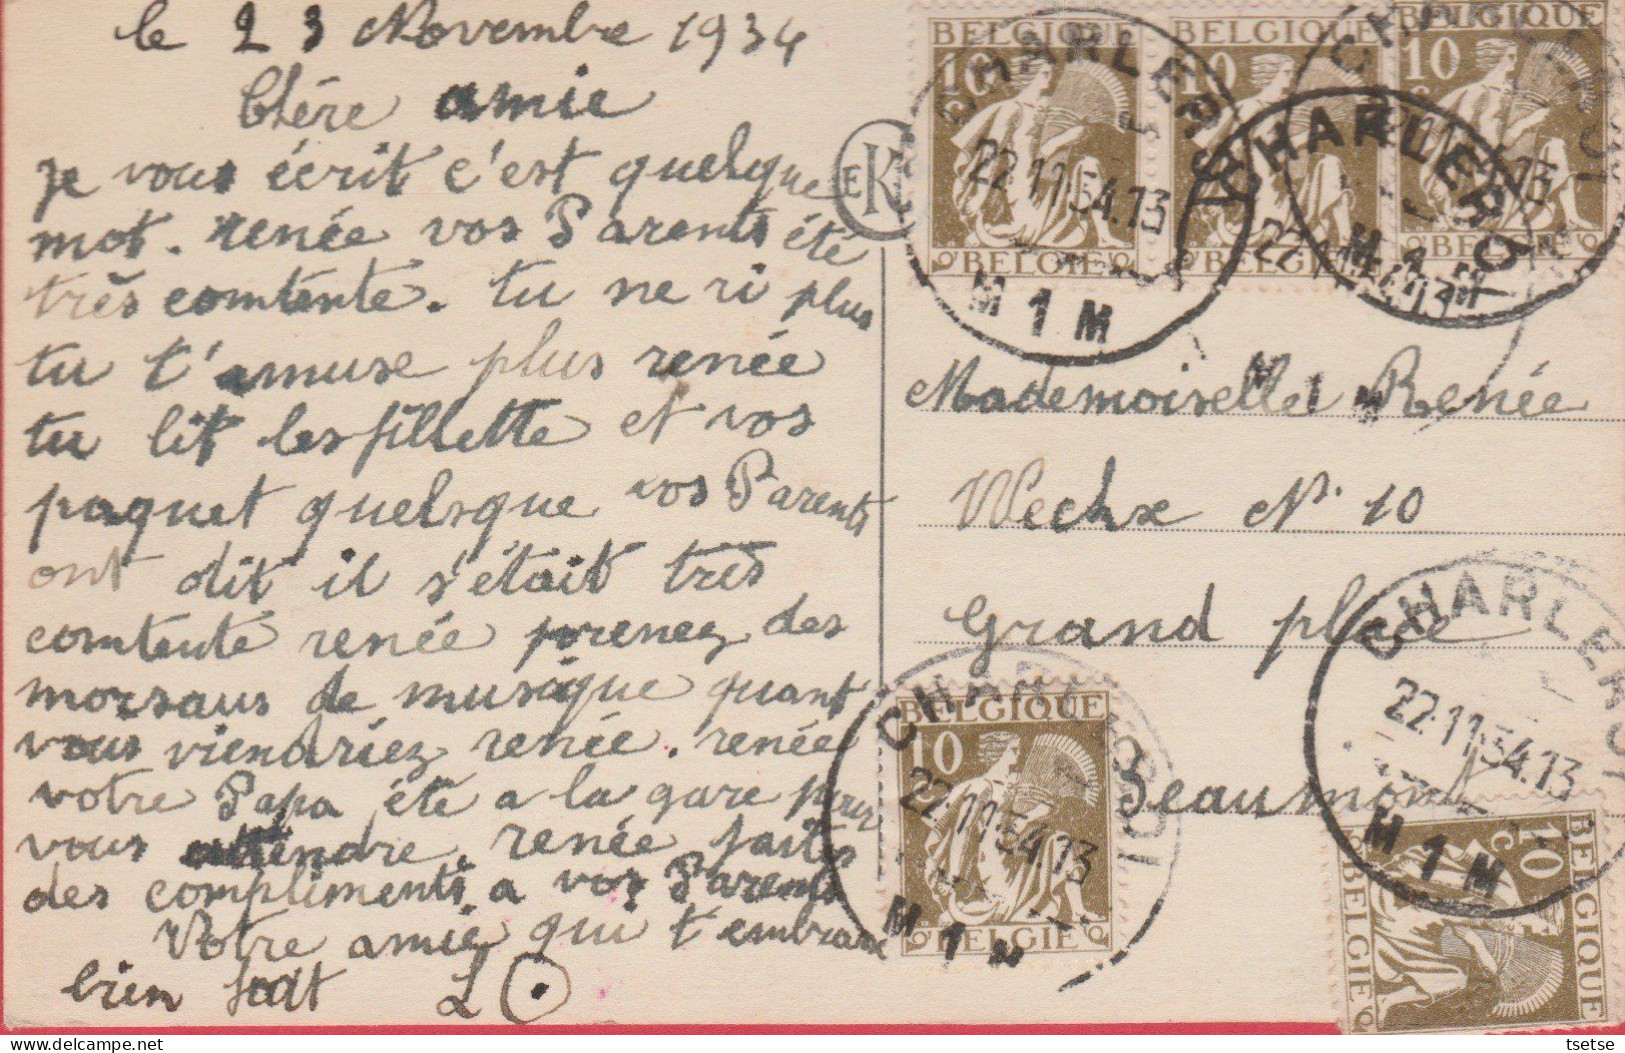 le 23 Novembre 1934
Chére amie
je vous écrit c'est quelque
mot. renée vos Parents été
très comtente. tu ne ri plus
tu t'amuse plus renée
tu lit les fillette et vos
paquet quelsque vos Parents
ont dit il s'était très
comtenté renée prenez des
morsaus de musique quant
vous viendriez renée. renée
votre Papa été a la gare pour
vous attendre. renée faites
des compliments a vos Parents
Votre amie qui t'embrasse
bien fort L
CEK
BELGIQUE
10 c
BELGIË
BELGIQUE
10
BELGIË
BELGIQUE
10 c
BELGIË
CHARLEROI
22.11.34.13
M 1 M
CHARLEROI
22.11.34.13
M 1 M
CHARLEROI
M 1 M
Mademoiselle Renée
N° 10
Grand place
Beaumont
BELGIQUE
10
BELGIË
CHARLEROI
22.11.34.13
M 1 M
CHARLEROI
22.11.34.13
M 1 M
BELGIQUE
10 c
BELGIË
tsetse
delcampe.net